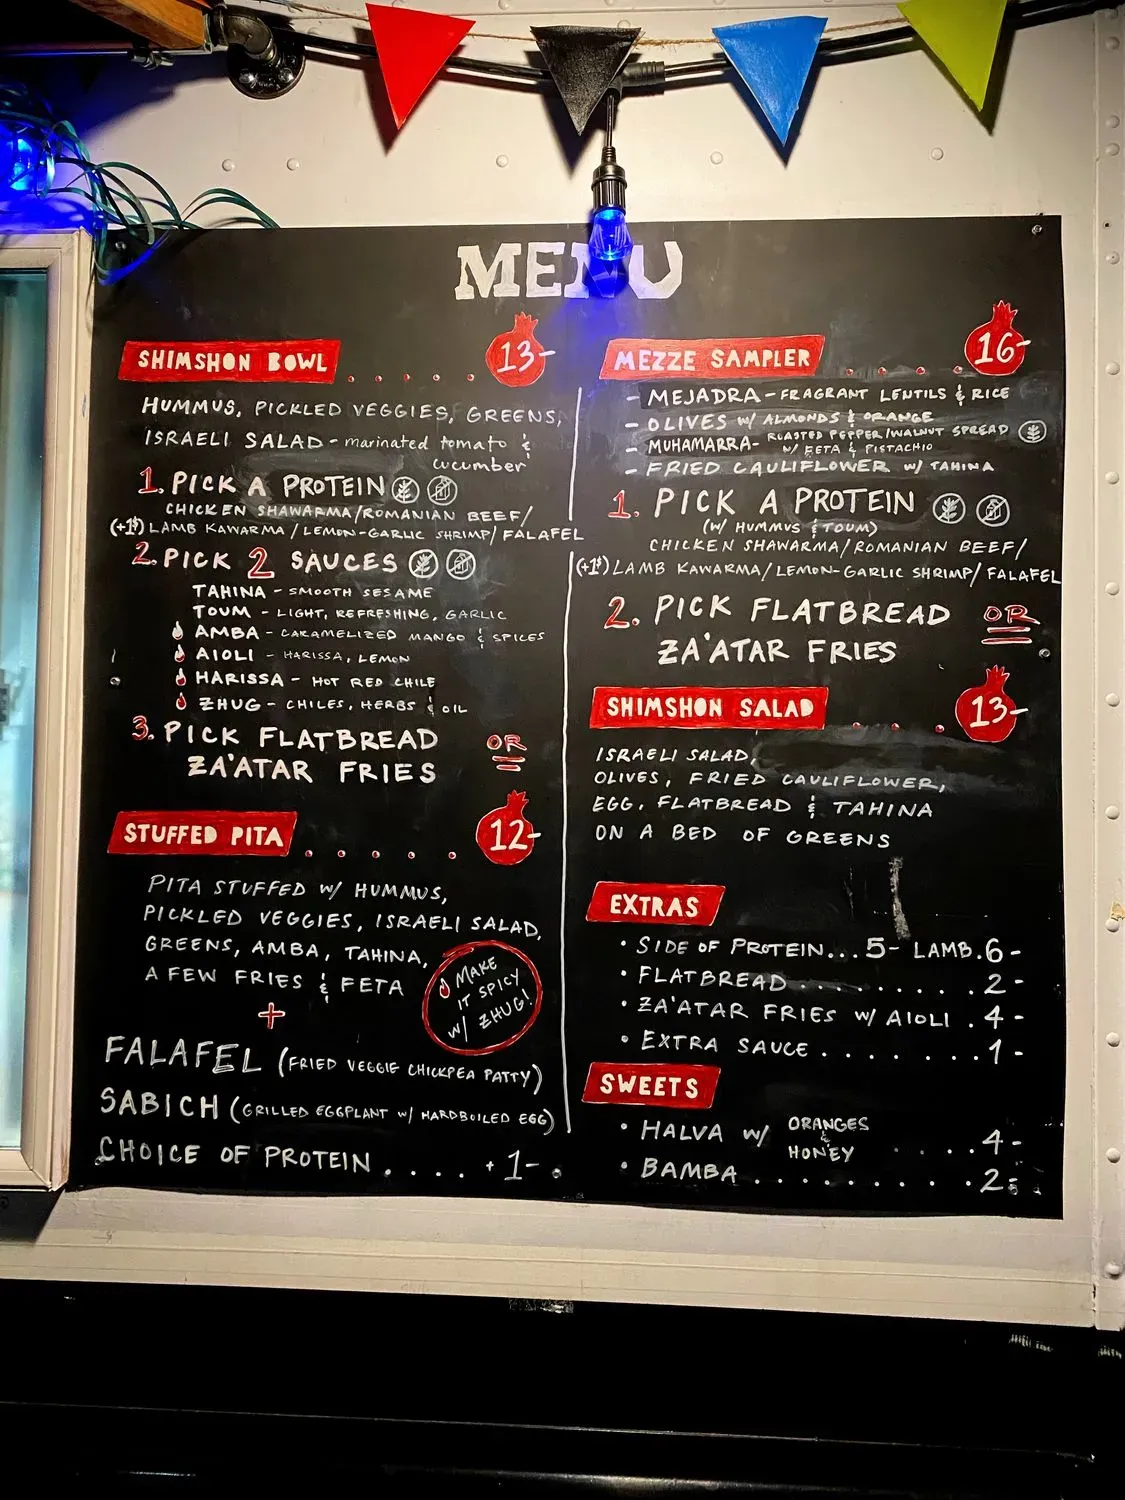 MENU
SHIMSHON BOWL . . . . . 13-
HUMMUS, PICKLED VEGGIES, GREENS,
ISRAELI SALAD - marinated tomato &
cucumber
1. PICK A PROTEIN
CHICKEN SHAWARMA/ROMANIAN BEEF/
(+1$) LAMB KAWARMA / LEMON-GARLIC SHRIMP/ FALAFEL
2. PICK 2 SAUCES
TAHINA - SMOOTH SESAME
TOUM - LIGHT, REFRESHING, GARLIC
AMBA - CARAMELIZED MANGO & SPICES
AIOLI - HARISSA, LEMON
HARISSA - HOT RED CHILE
ZHUG - CHILES, HERBS & OIL
3. PICK FLATBREAD OR
ZA'ATAR FRIES
STUFFED PITA . . . . . 12-
PITA STUFFED W/ HUMMUS,
PICKLED VEGGIES, ISRAELI SALAD,
GREENS, AMBA, TAHINA,
A FEW FRIES & FETA
MAKE
IT SPICY
W/ ZHUG!
+
FALAFEL (FRIED VEGGIE CHICKPEA PATTY)
SABICH (GRILLED EGGPLANT W/ HARDBOILED EGG)
CHOICE OF PROTEIN . . . . . +1-
MEZZE SAMPLER . . . . 16-
- MEJADRA - FRAGRANT LENTILS & RICE
- OLIVES W/ ALMONDS & ORANGE
- MUHAMARRA - ROASTED PEPPER/WALNUT SPREAD
W/ FETA & PISTACHIO
- FRIED CAULIFLOWER W/ TAHINA
1. PICK A PROTEIN
(W/ HUMMUS & TOUM)
CHICKEN SHAWARMA/ROMANIAN BEEF/
(+1$) LAMB KAWARMA/LEMON-GARLIC SHRIMP/ FALAFEL
2. PICK FLATBREAD OR
ZA'ATAR FRIES
SHIMSHON SALAD . . . . 13-
ISRAELI SALAD,
OLIVES, FRIED CAULIFLOWER,
EGG, FLATBREAD & TAHINA
ON A BED OF GREENS
EXTRAS
• SIDE OF PROTEIN... 5- LAMB.6-
• FLATBREAD . . . . . . . . . 2-
• ZA'ATAR FRIES W/ AIOLI . 4-
• EXTRA SAUCE . . . . . . . . 1-
SWEETS
• HALVA W/ ORANGES & HONEY . . . . . 4-
• BAMBA . . . . . . . . . . 2-